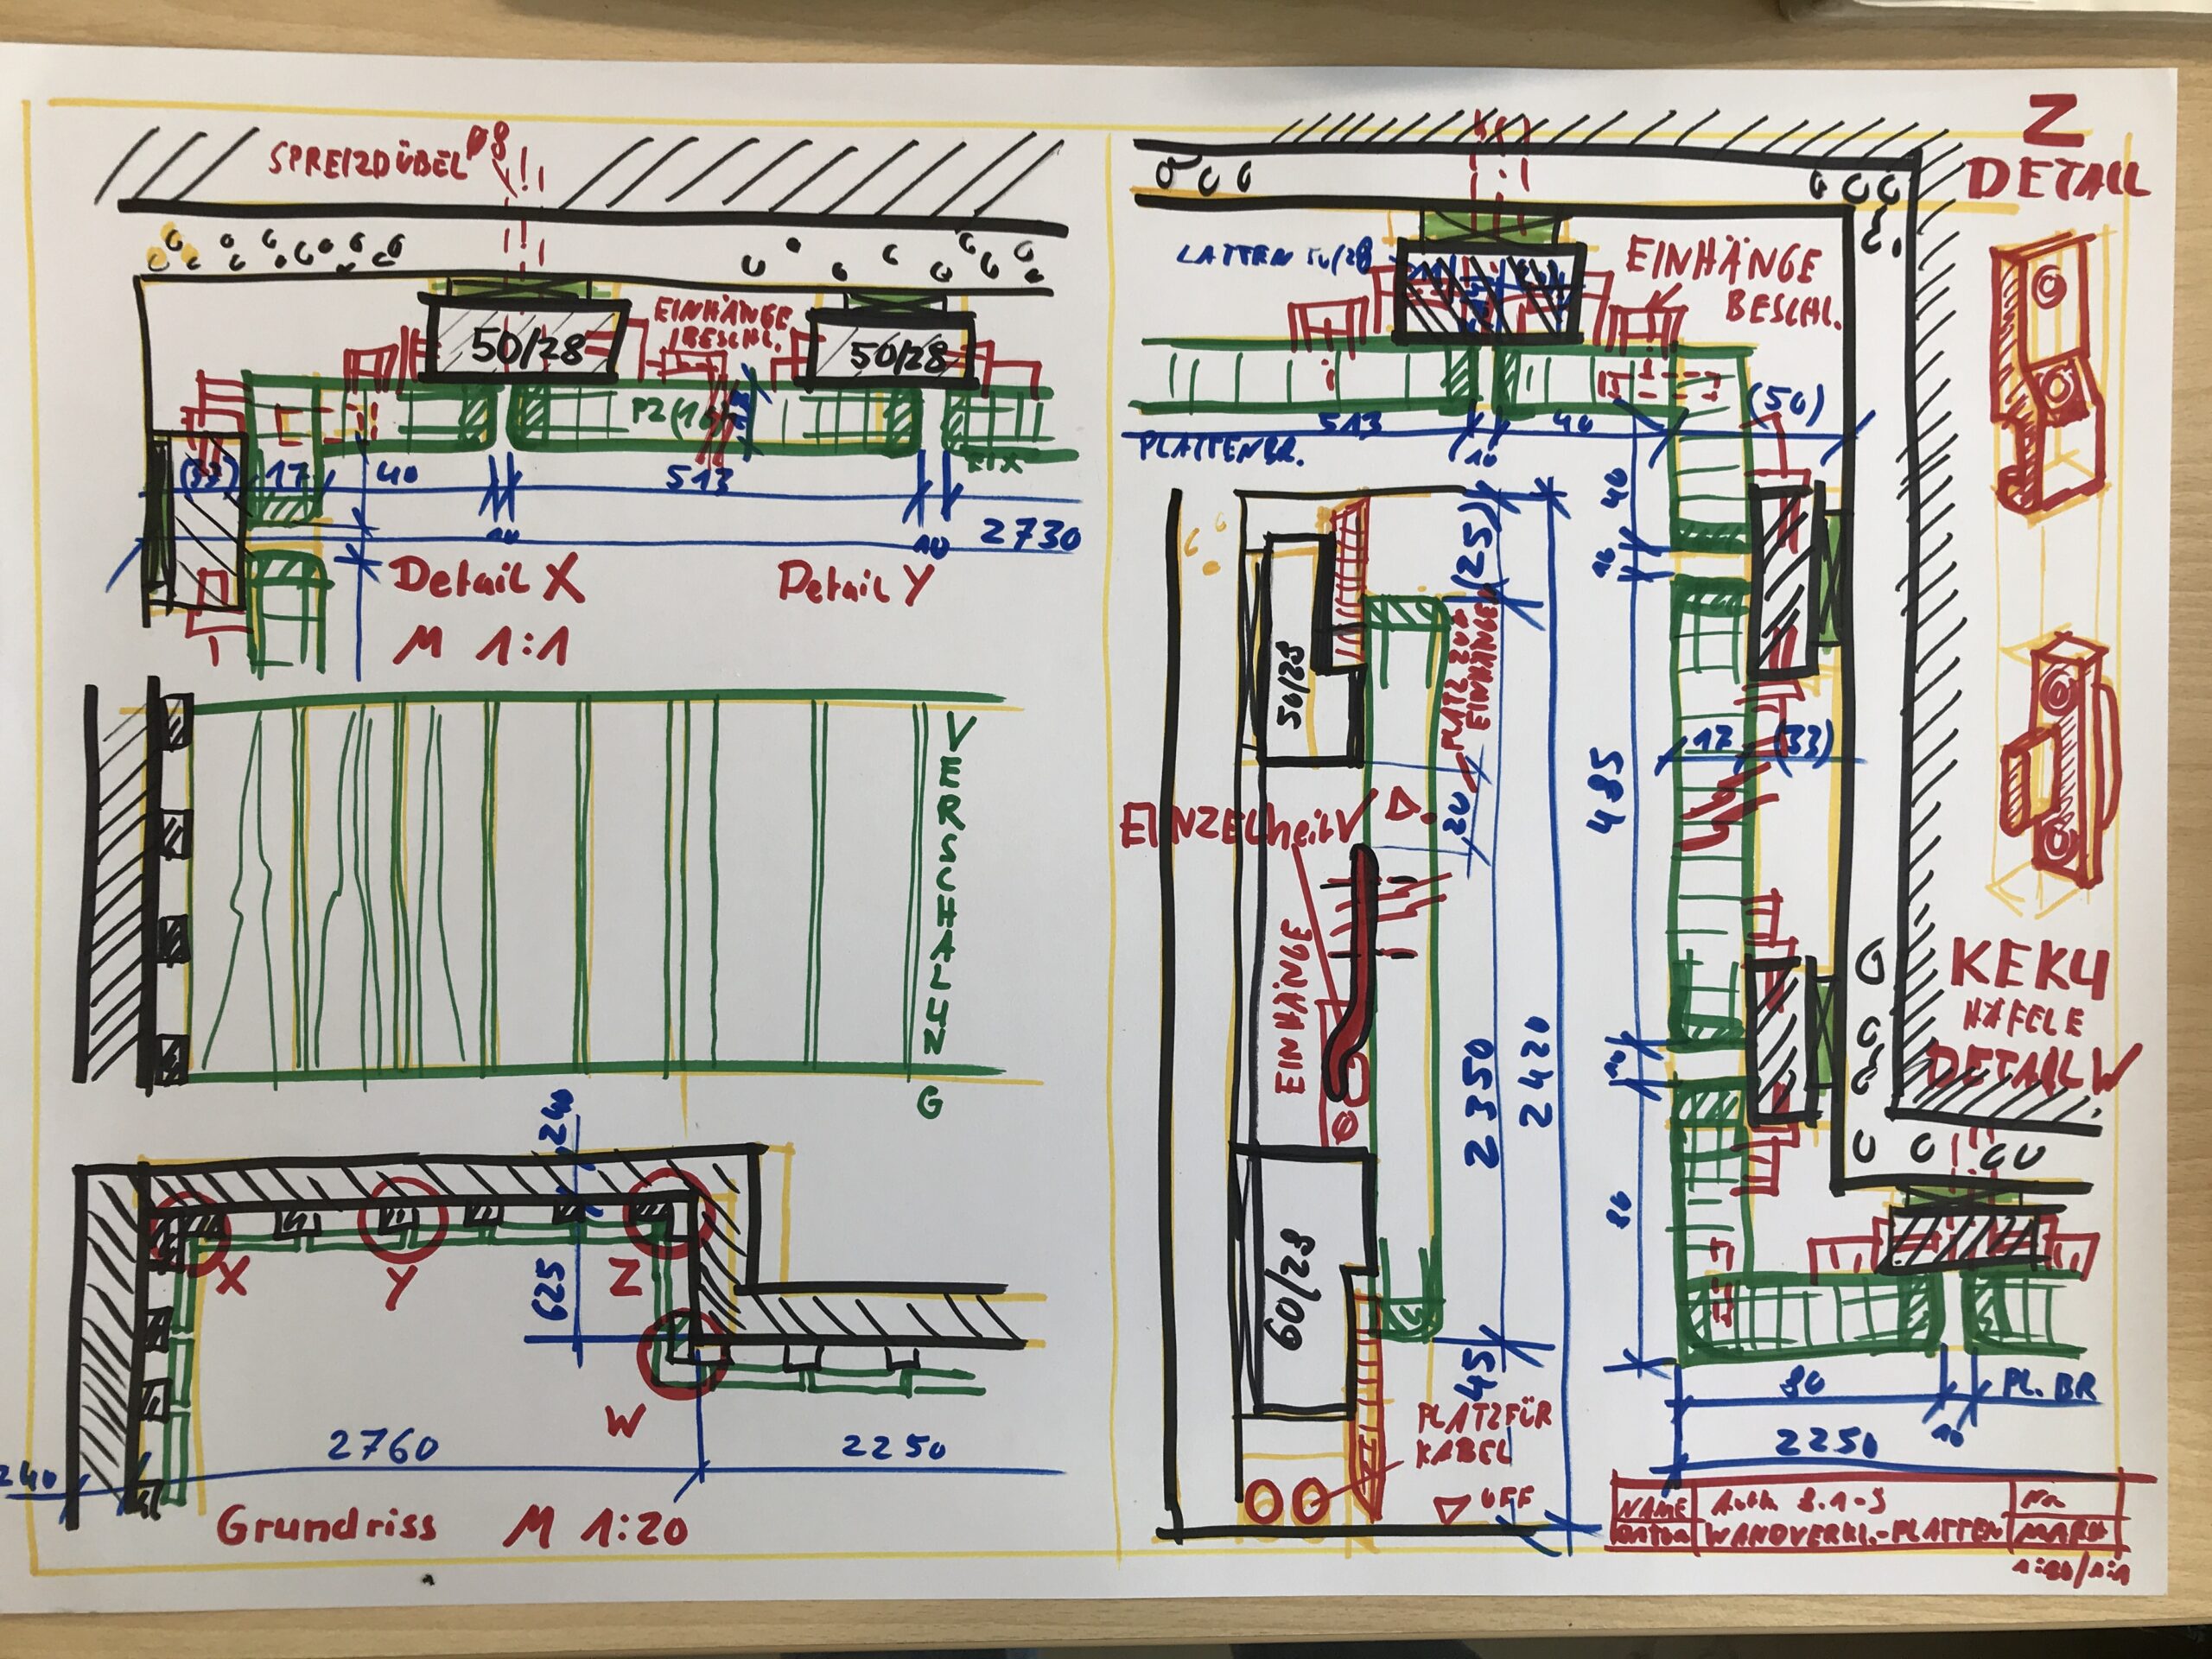 SPREIZDÜBEL Ø8
EINHÄNGE
BESCHL.
50/28
50/28
(33)
17
40
513
10
10
2730
Detail X
Detail Y
M 1:1
VERSCHALUNG
240
625
X
Y
Z
W
2760
2250
240
Grundriss M 1:20
LATTEN 50/28
EINHÄNGE
BESCHL.
513
10
40
(50)
PLATTENBR.
50/28
(25)
PLATZ ZUM
EINHÄNGEN
20
EINZELheit V
EINHÄNGE
2350
2420
60/28
45
PLATZ FÜR
KABEL
OFF
40
10
485
17
(33)
10
80
80
10
PL. BR
2250
Z
DETAIL
KEKU
HÄFELE
DETAIL W
NAME
DATUM
WANDVERKL.-PLATTEN
1:20/1:1